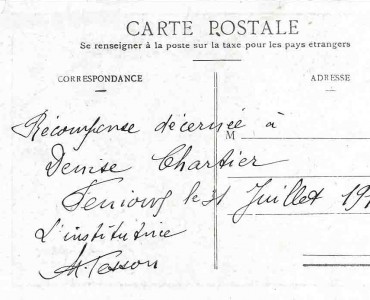 CARTE POSTALE
Se renseigner à la poste sur la taxe pour les pays étrangers
CORRESPONDANCE
ADRESSE
Récompense décernée à
M
Denise Chartier
le 31 Juillet 19
L'institutrice